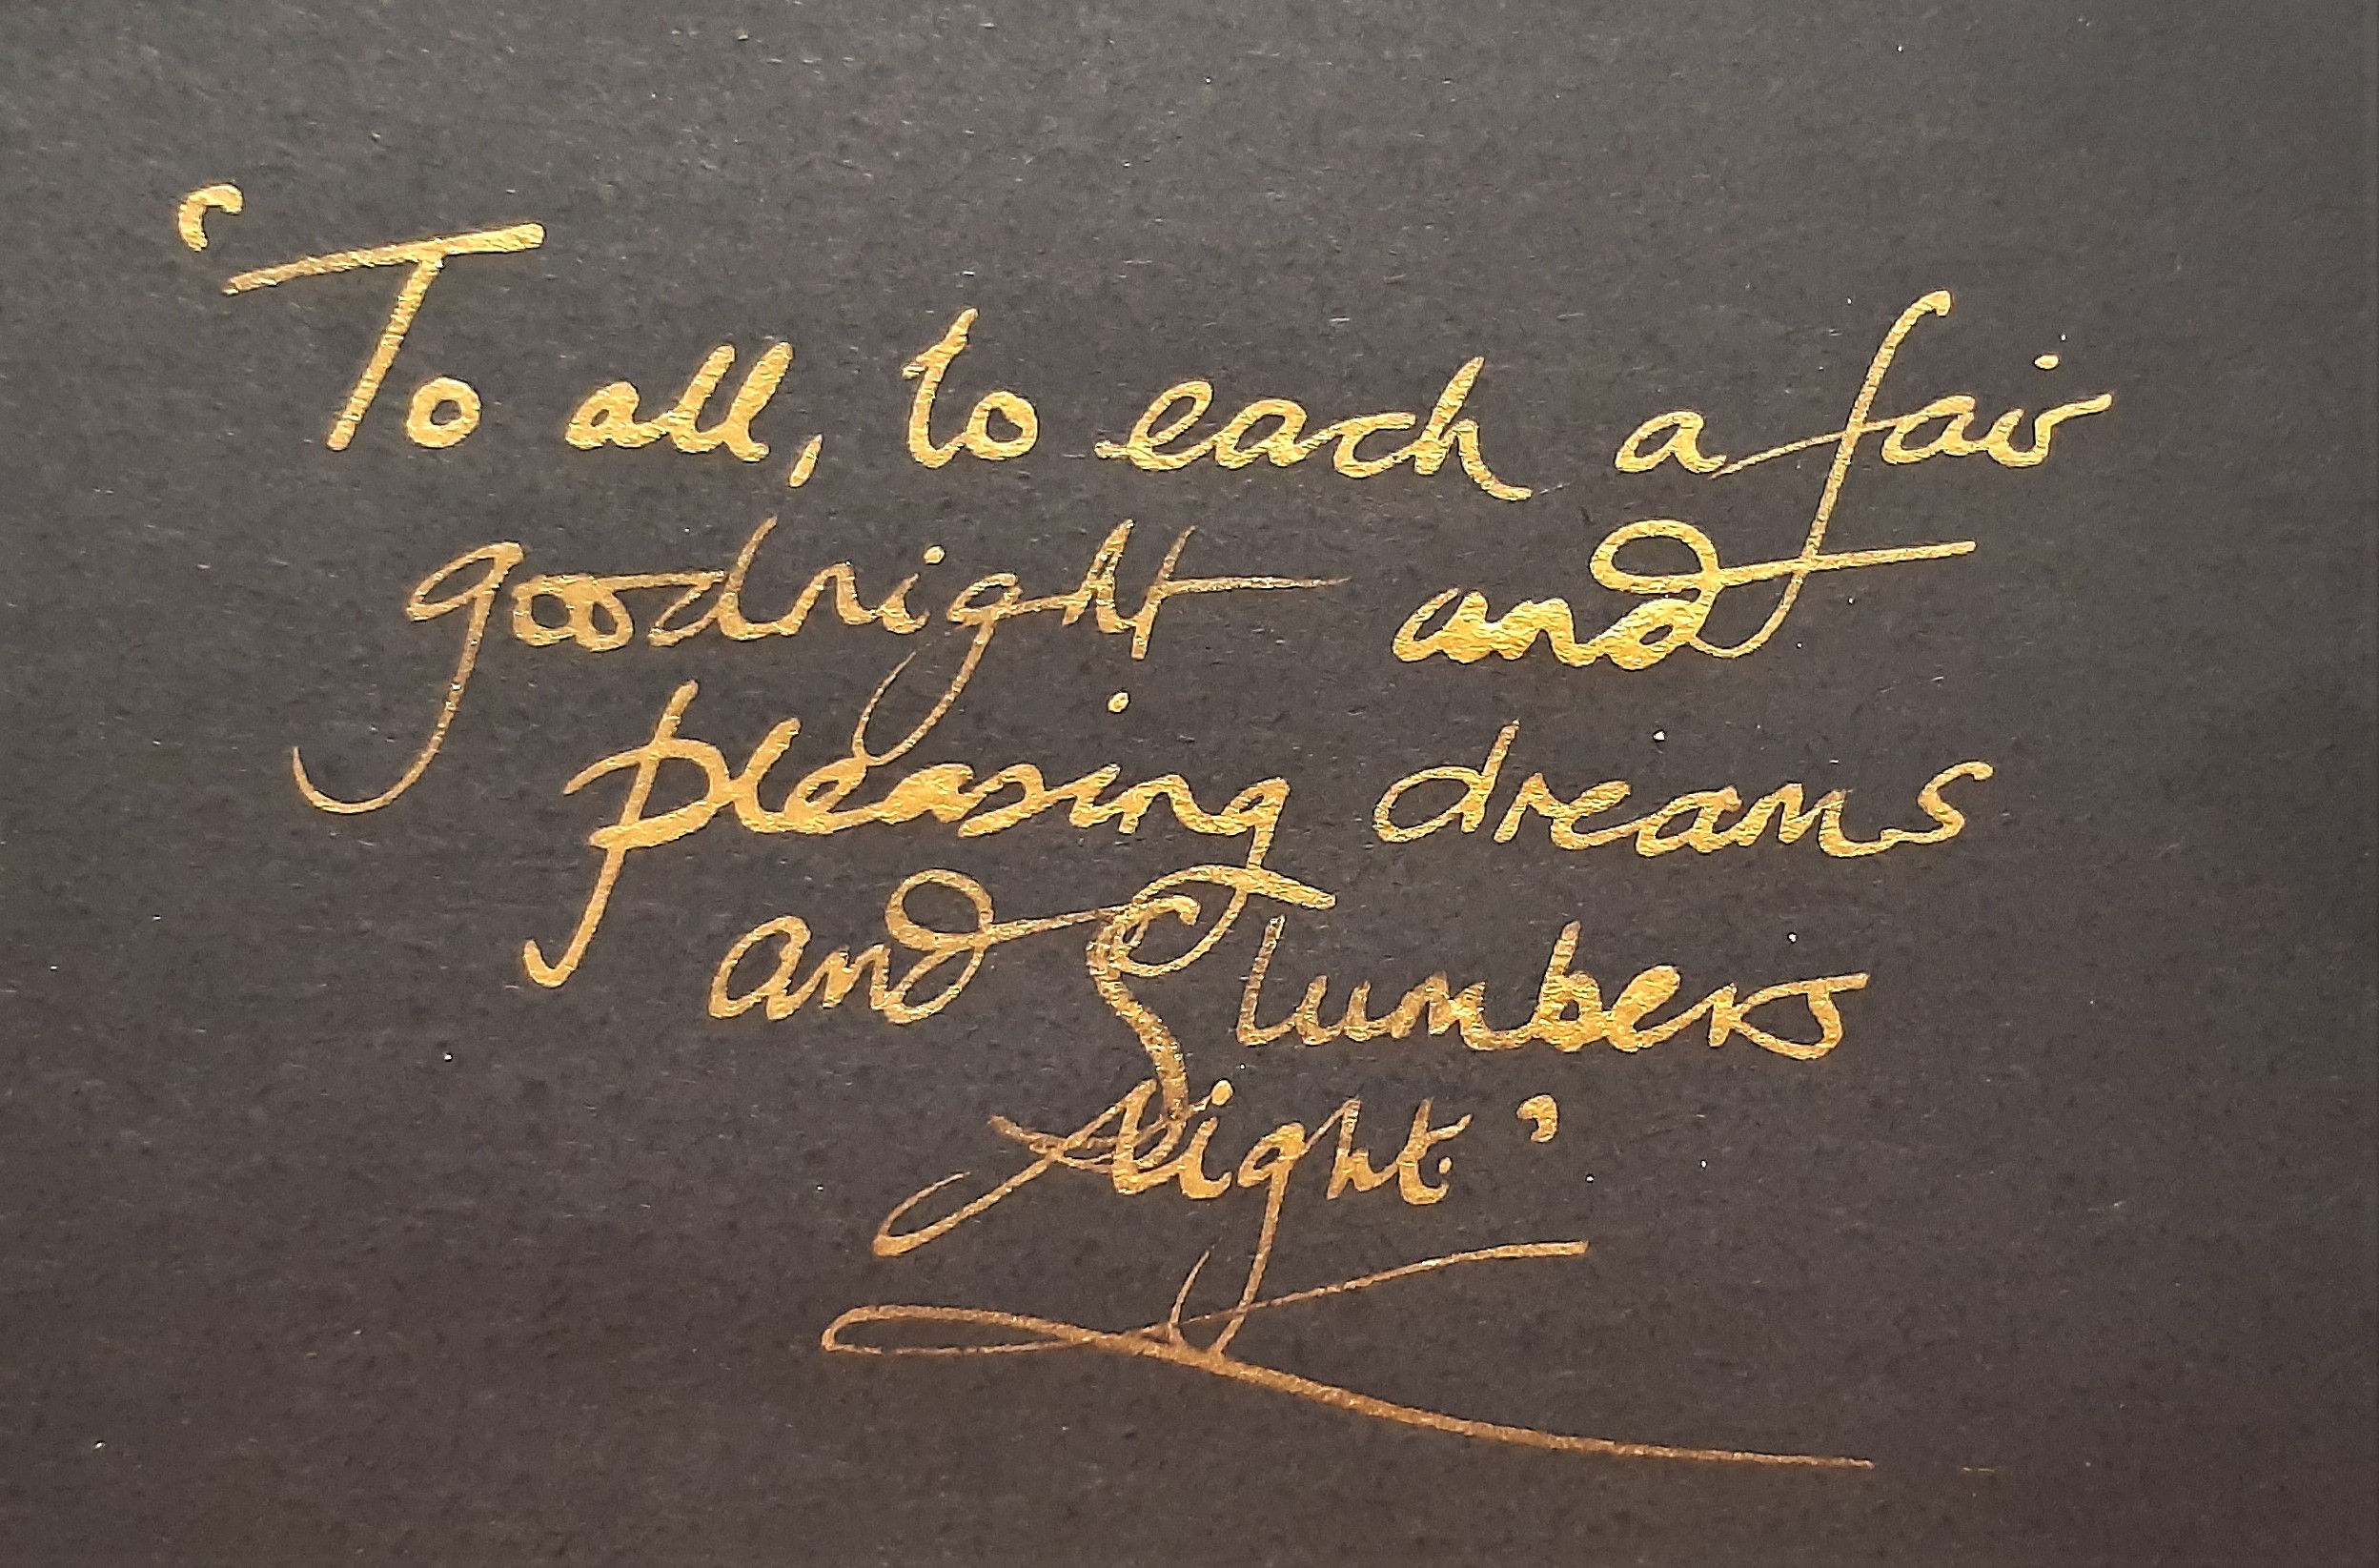 ‘To all, to each a fair
goodnight and
pleasing dreams
and Slumbers
light’